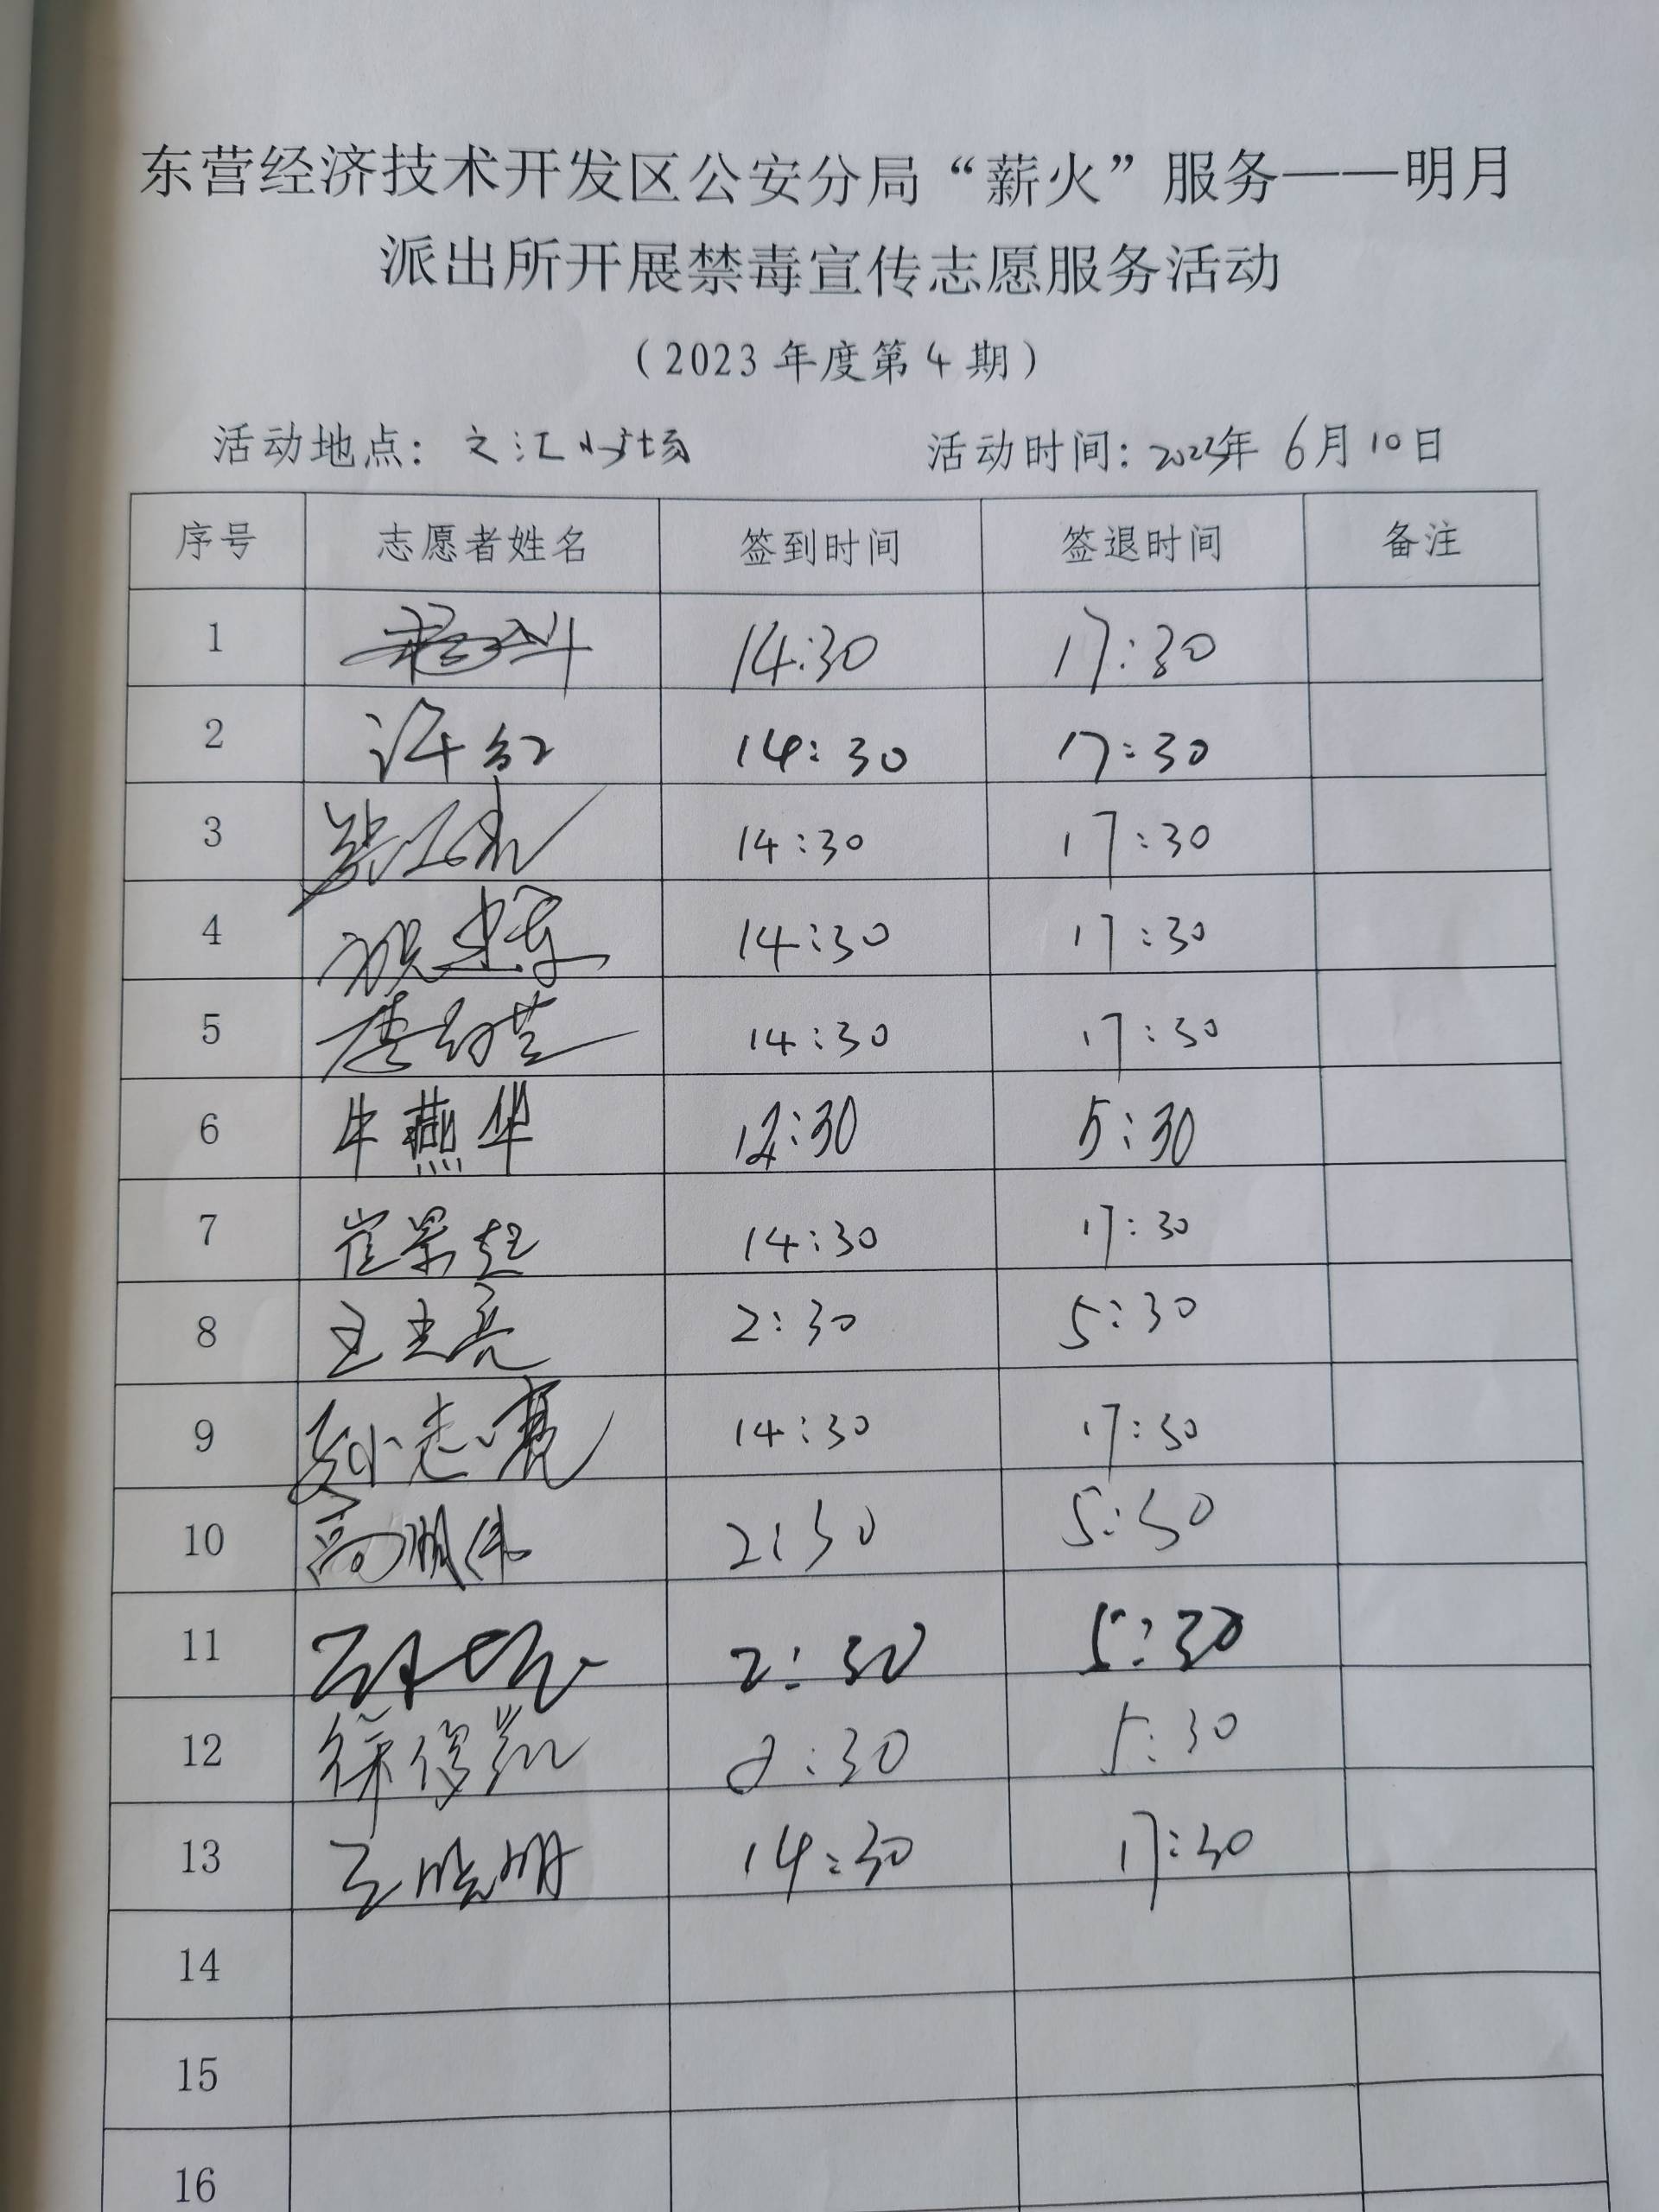 东营经济技术开发区公安分局“薪火”服务——明月
派出所开展禁毒宣传志愿服务活动
（2023年度第4期）
活动地点：文汇广场 活动时间：2023年6月10日
序号 志愿者姓名 签到时间 签退时间 备注
1 14:30 17:30
2 许红 14:30 17:30
3 14:30 17:30
4 14:30 17:30
5 14:30 17:30
6 牛燕华 12:30 5:30
7 崔景超 14:30 17:30
8 王主亮 2:30 5:30
9 孙志亮 14:30 17:30
10 高鹏伟 2:30 5:30
11 2:30 5:30
12 徐俊凯 2:30 5:30
13 王晓明 14:30 17:30
14
15
16